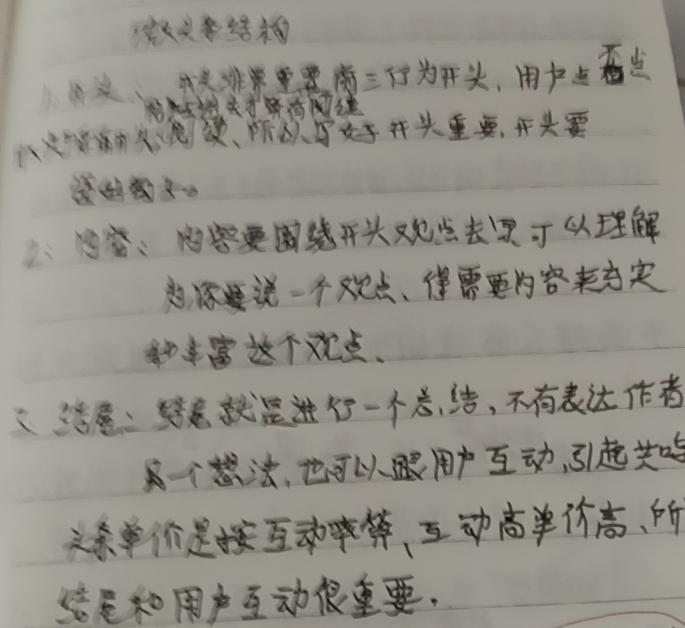 微头条结构
1、开头、开头非常重要前三行为开头，用户点不点
开头、阅读、所以写好于开头重要，开头要
2、内容、内容要围绕开头观点去写可以理解
为你要说一个观点、得需要内容来充实
和丰富这个观点、
三、结尾：结尾就是进行一个总结，不有表达作者
另一个想法，也可以跟用户互动，引起共鸣
头条单价是按互动率算、互动高单价高、所
结尾和用户互动很重要.